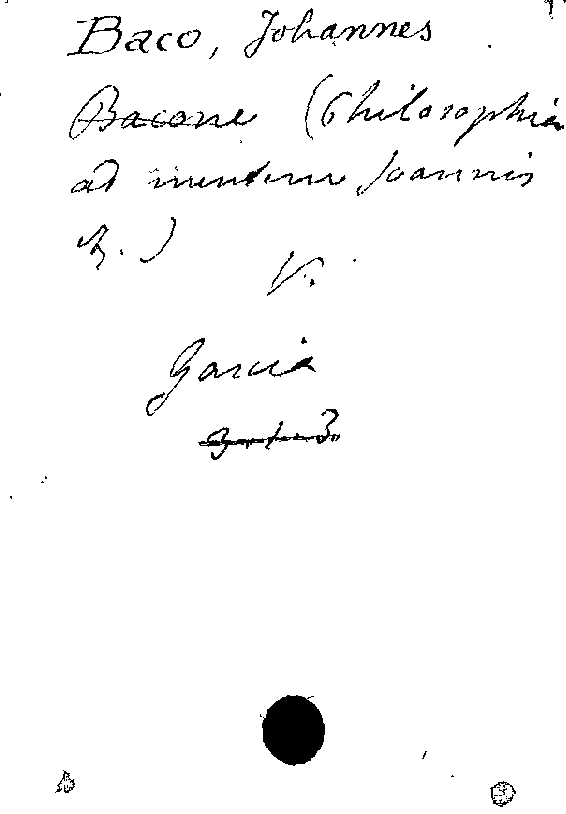 Baco, Johannes
Bacone (Philosophia
ad mentem Joannis
B.)
V.
Garcia
3. 1. 3.